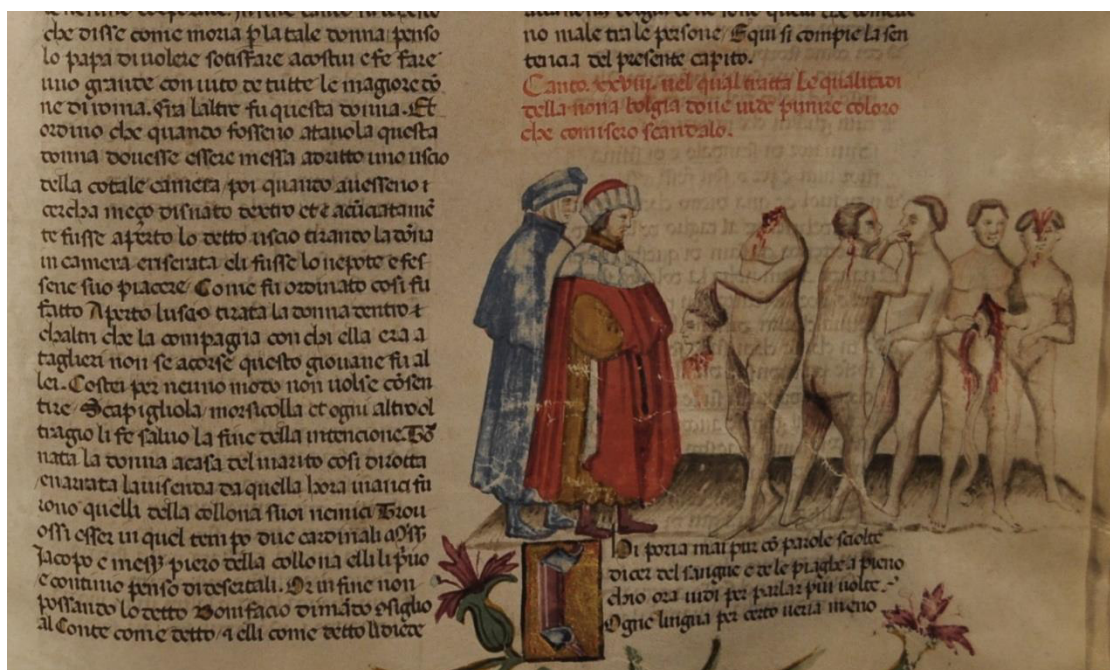 che disse come moria p la tale donna penso
lo papa di volere sotisfare acostui e fe fare
uno grande conuito de tutte le magiore dõ
ne di roma. fra laltre fu questa donna. Et
ordino che quando fosseno atauola questa
donna douesse essere messa adritto uno uscio
della cotale camera poi quando auesseno
cercha meço disnato dextro et
te fusse aperto lo detto uscio tirando la dõna
in camera eriserata eli fusse lo nepote e fes
sene suo piacere Come fu ordinato cosi fu
fatto Aperto luscio tirata la donna dentro
che la compagna con chi ella era a
taglieri non se acorse questo giouane fu al
lei. Costei per neuno modo non uolse cõsen
tire Scapigliola morsicolla et ogni altro ol
tragio li fe saluo la fine della intencione. Tor
nata la donna acasa del marito cosi dirotta
enarrata la uisenda da quella hora inanci fu
rono quelli della collona suoi nemici Trou
ossi esser in quel tempo due cardinali
Jacopo e piero della collona elli li
e continuo penso di desertali. Or in fine non
possando lo detto Bonifacio dimãdo
al Conte come detto elli come detto li diete
no male tra le persone. E qui si compie la sen
tencia del presente capito.
Canto. xxviii. nel qual tratta Le qualitadi
della nona bolgia doue uide punire coloro
che comisero scandalo.
Hi poria mai pur cõ parole sciolte
dicer del sangue e de le piaghe a pieno
chio ora uidi per parlar piu uolte
Ogne lingua per certo ueria meno